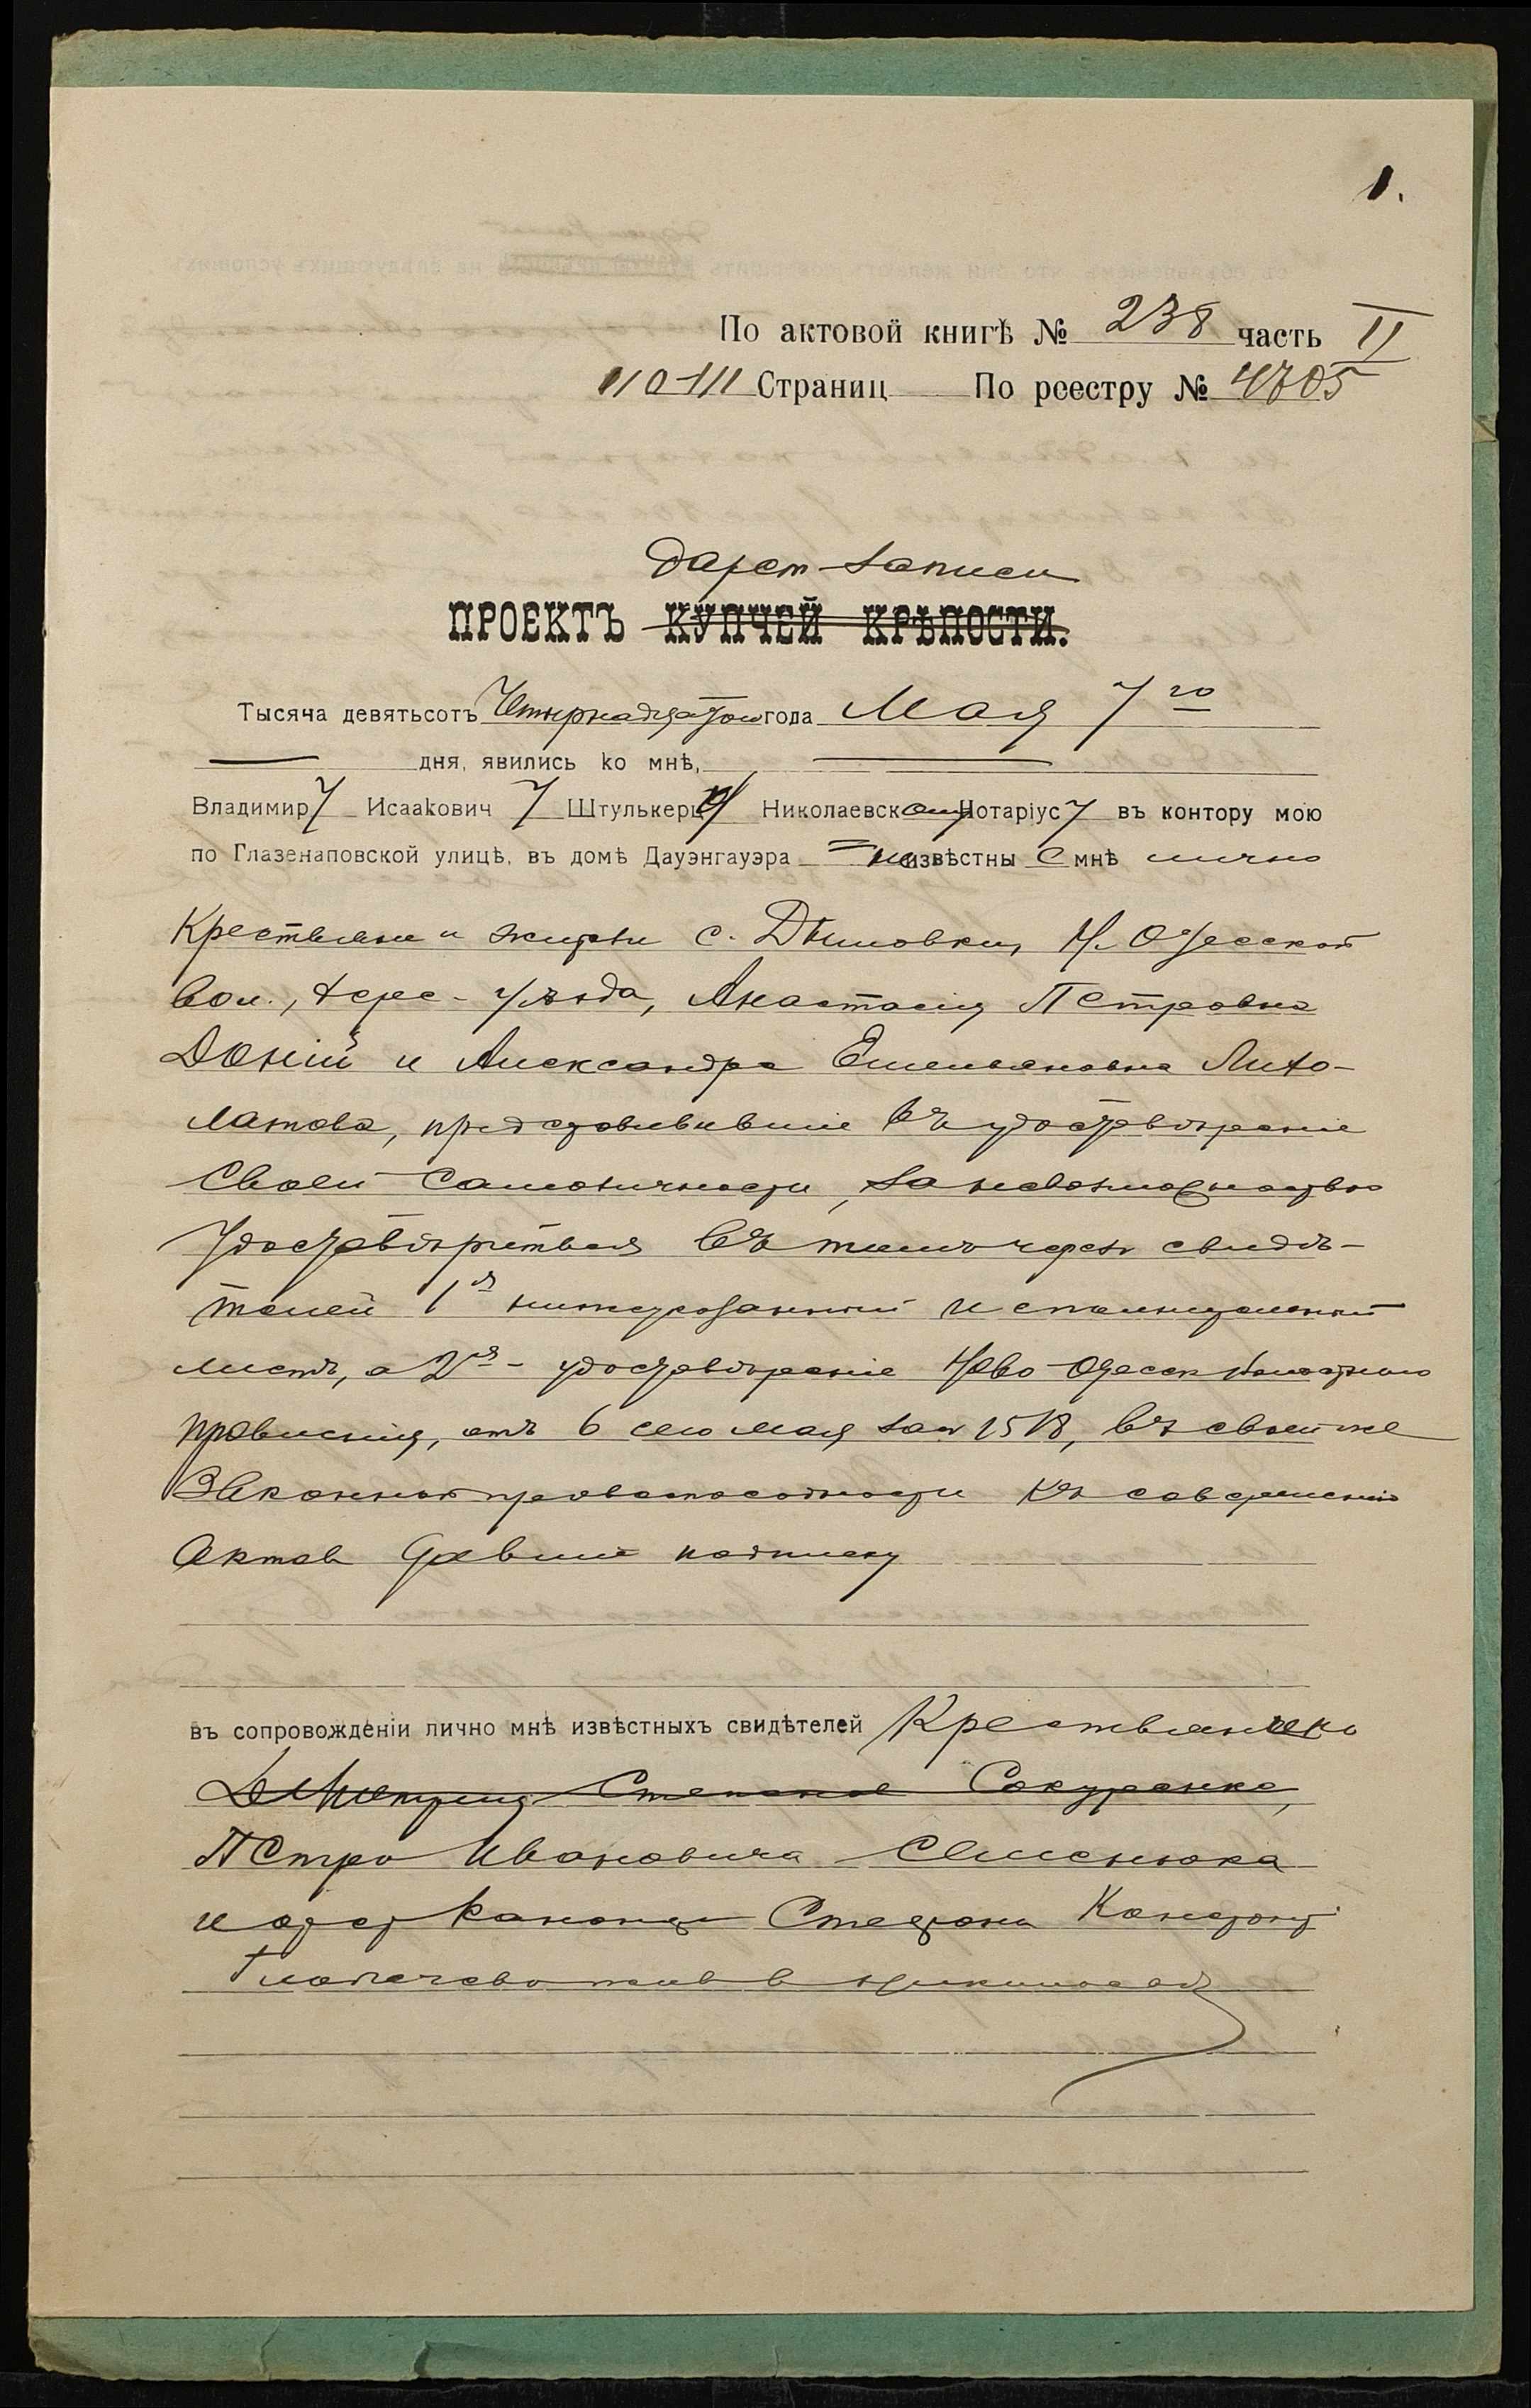 1.
По актовой книгѣ № 238 часть II
110-111 Страниц По реестру № 4705
Дарст записи
ПРОЕКТЪ КУПЧЕЙ КРѢПОСТИ.
Тысяча девятьсотъ Четырнадцатого года Мая 7го
дня, явились ко мнѣ,
Владимиру Исааковичу Штулькерцу Николаевскому Нотаріусу въ контору мою
по Глазенаповской улицѣ, въ домѣ Дауэнгауэра неизвѣстные мнѣ лично
Крестьяне и жит. с. Дымовки, Н. Одесской
вол., Херс. уѣзда, Анастасія Петровна
Доній и Александра Емельяновна Лихо-
латова, представившіе въ удостовѣреніе
своей самоличности, за невозможностью
удостовѣриться въ томъ чрезъ свидѣ-
телей 1я исполнительный
листъ, а 2я - удостовѣреніе Ново Одесск Волостного
правленія, отъ 6 сего мая за № 1518, въ своей же
законной правоспособности къ совершенію
актов давшіе подписку
въ сопровожденіи лично мнѣ извѣстныхъ свидѣтелей Крестьянъ
Дмитрія Степанов
Петра Ивановича Семенюка
и